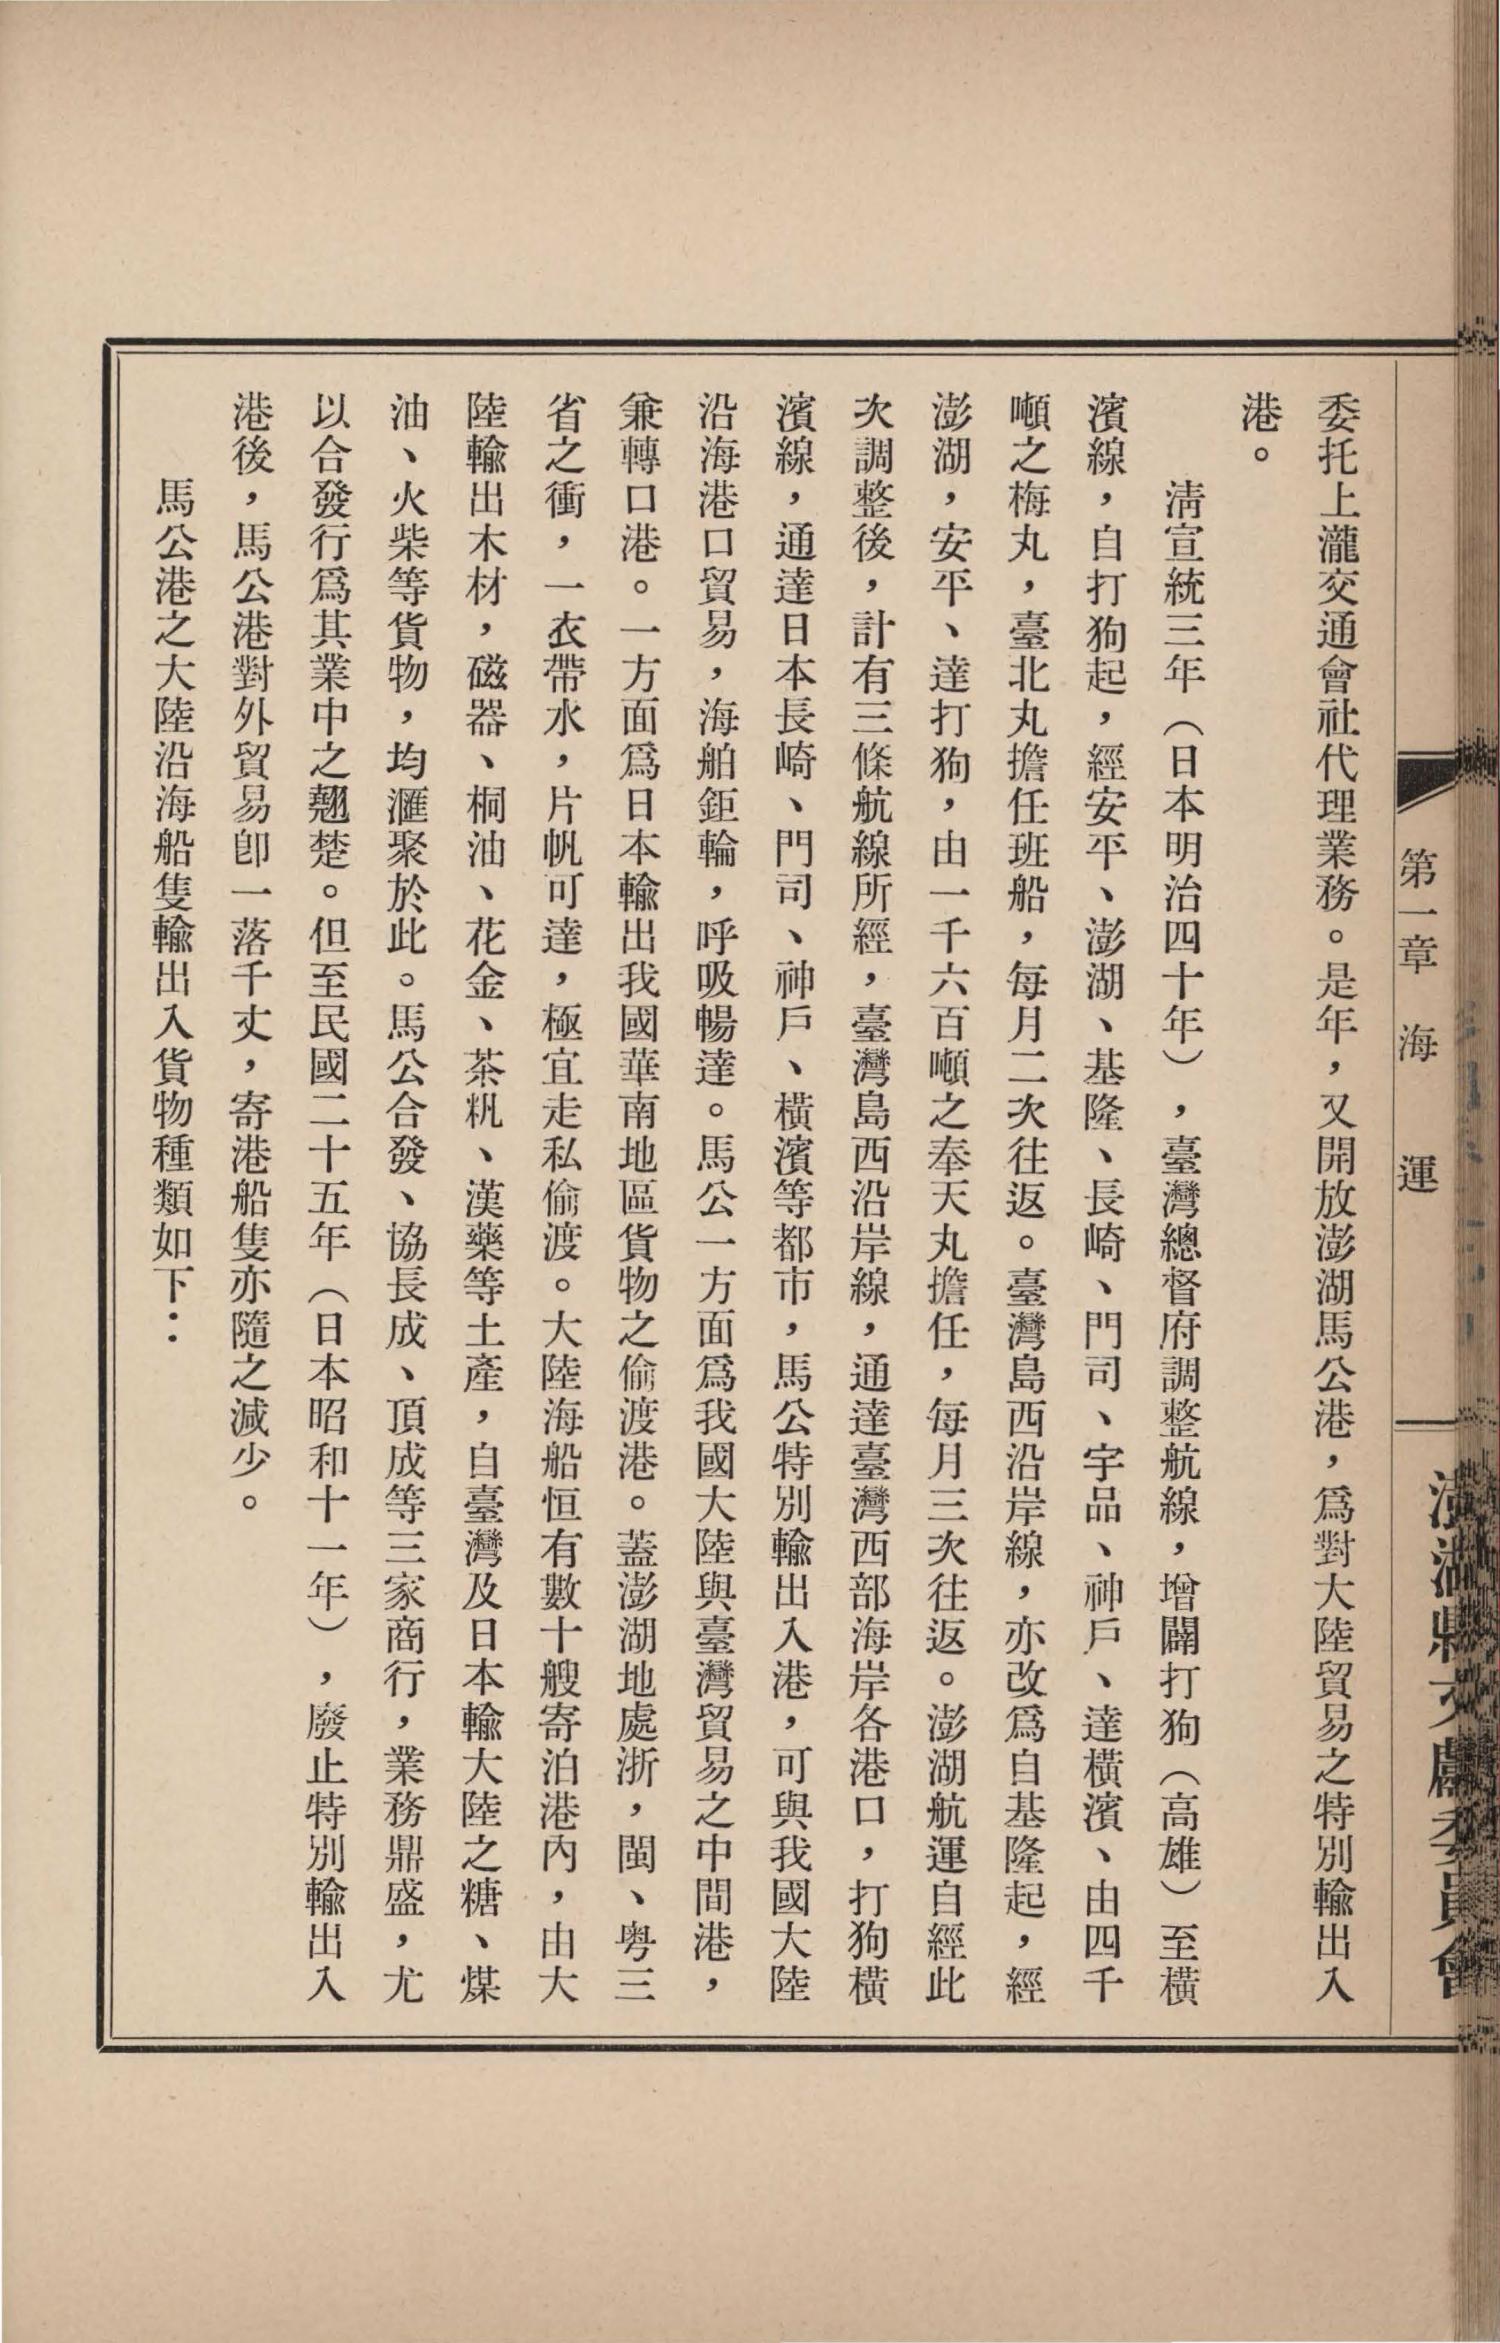 第一章　海　運
澎湖縣文獻委員會
委托上瀧交通會社代理業務。是年，又開放澎湖馬公港，爲對大陸貿易之特別輸出入
港。
清宣統三年（日本明治四十年），臺灣總督府調整航線，增闢打狗（高雄）至橫
濱線，自打狗起，經安平、澎湖、基隆、長崎、門司、宇品、神戶、達橫濱、由四千
噸之梅丸，臺北丸擔任班船，每月二次往返。臺灣島西沿岸線，亦改爲自基隆起，經
澎湖，安平、達打狗，由一千六百噸之奉天丸擔任，每月三次往返。澎湖航運自經此
次調整後，計有三條航線所經，臺灣島西沿岸線，通達臺灣西部海岸各港口，打狗橫
濱線，通達日本長崎、門司、神戶、橫濱等都市，馬公特別輸出入港，可與我國大陸
沿海港口貿易，海舶鉅輪，呼吸暢達。馬公一方面爲我國大陸與臺灣貿易之中間港，
兼轉口港。一方面爲日本輸出我國華南地區貨物之偷渡港。蓋澎湖地處浙，閩、粵三
省之衝，一衣帶水，片帆可達，極宜走私偷渡。大陸海船恒有數十艘寄泊港內，由大
陸輸出木材，磁器、桐油、花金、茶籸、漢藥等土產，自臺灣及日本輸大陸之糖、煤
油、火柴等貨物，均滙聚於此。馬公合發、協長成、頂成等三家商行，業務鼎盛，尤
以合發行爲其業中之翹楚。但至民國二十五年（日本昭和十一年），廢止特別輸出入
港後，馬公港對外貿易卽一落千丈，寄港船隻亦隨之減少。
馬公港之大陸沿海船隻輸出入貨物種類如下：